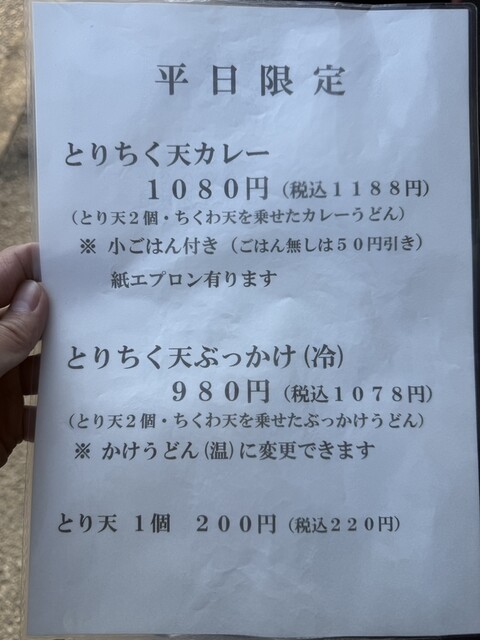 平日限定
とりちく天カレー
１０８０円（税込１１８８円）
（とり天２個・ちくわ天を乗せたカレーうどん）
※ 小ごはん付き（ごはん無しは５０円引き）
紙エプロン有ります
とりちく天ぶっかけ(冷)
９８０円（税込１０７８円）
（とり天２個・ちくわ天を乗せたぶっかけうどん）
※ かけうどん(温)に変更できます
とり天 １個 ２００円（税込２２０円）